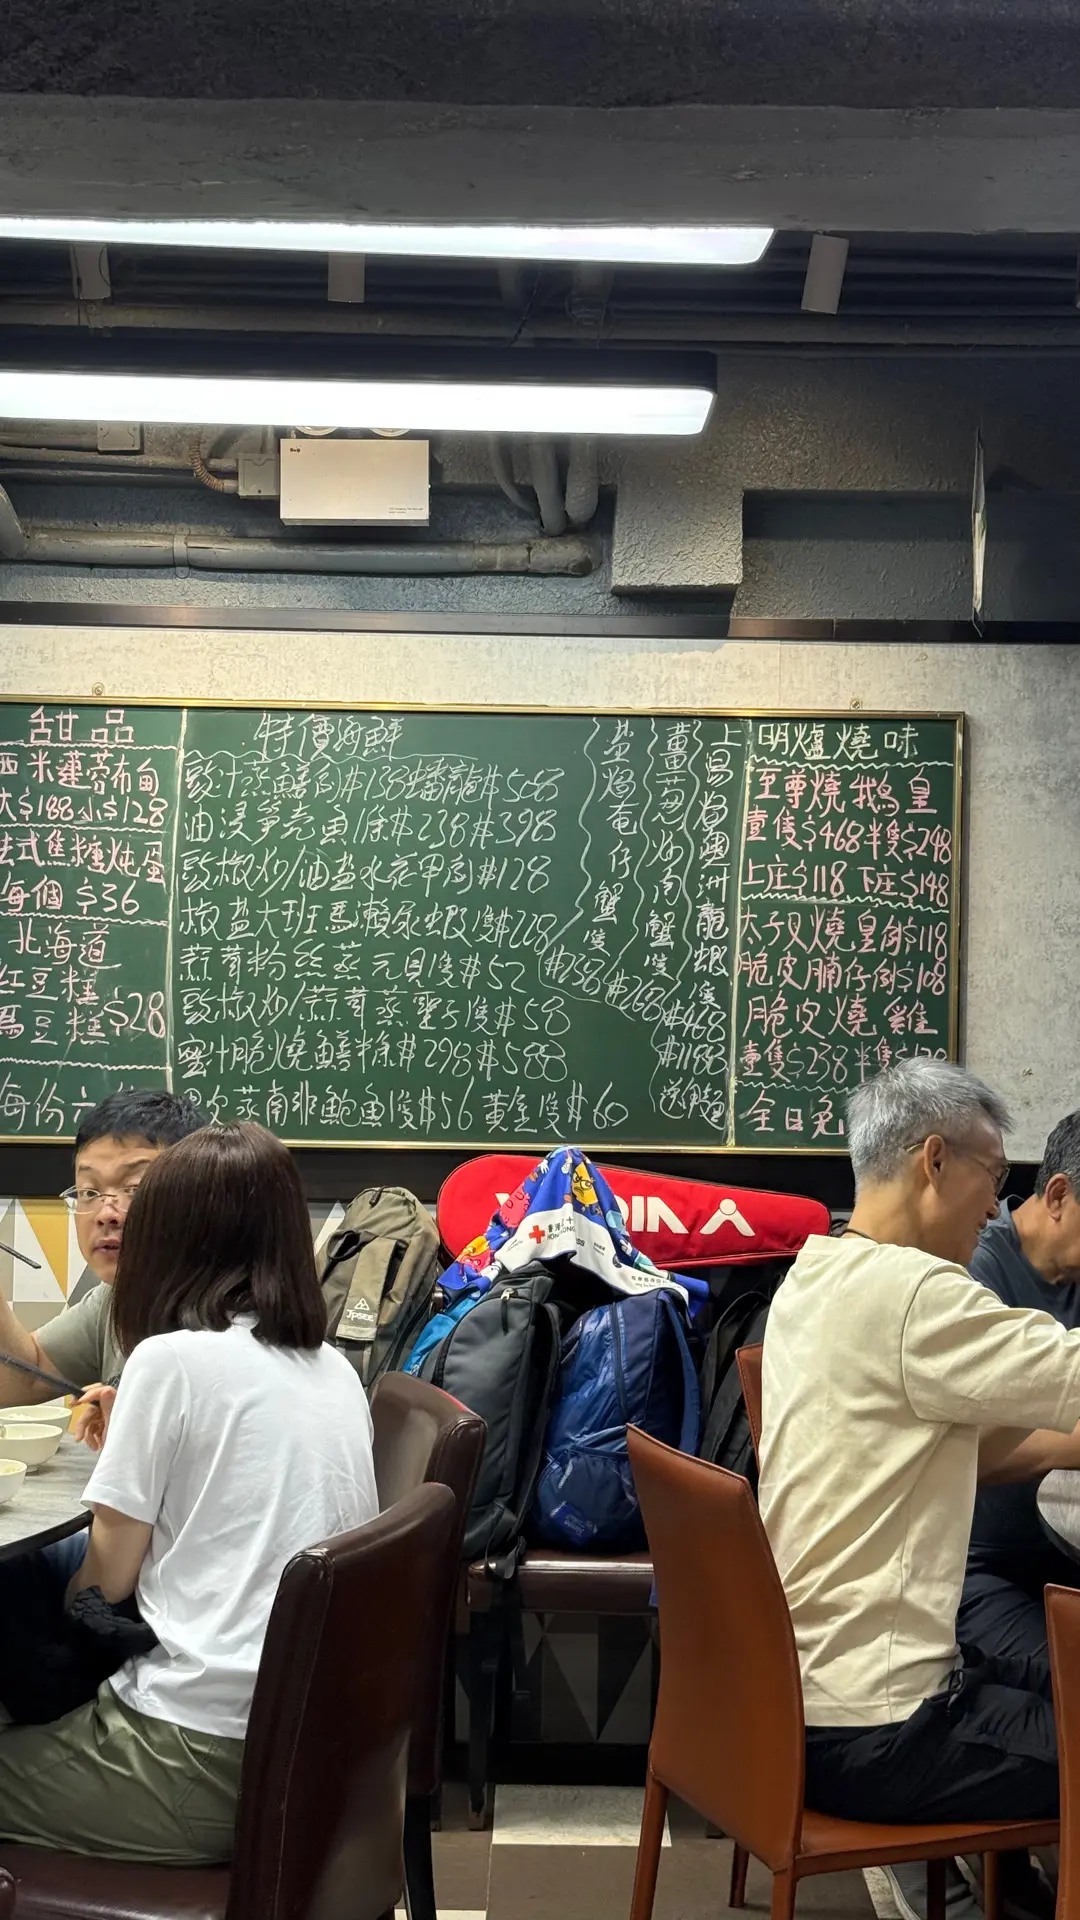 甜品
西米蓮蓉布甸
大$188小$128
法式焦糖炖蛋
每個 $36
北海道
紅豆糕
馬豆糕 $28
每份六件
特價海鮮
豉汁蒸鱔例#138蟠龍#508
油浸筍壳魚1條#238#398
豉椒炒/油盐水花甲例#128
椒盐大班馬瀨尿蝦隻#228
蒜蓉粉丝蒸元貝隻#52
豉椒炒/蒜蓉蒸聖子隻#58
蜜汁脆燒鱔半条#298#588
蒸南非鮑魚隻#56 黃金隻#60
盐焗奄仔蟹隻#238
薑葱炒肉蟹隻#268
上湯焗澳洲龍蝦隻#468
#1188
送伊麵
明爐燒味
至尊燒鵝皇
壹隻$468半隻$248
上庄$118 下庄$148
太子叉燒皇例$118
脆皮腩仔例$108
脆皮燒雞
壹隻$238半隻
全日免
JPSEE
HONG KONG